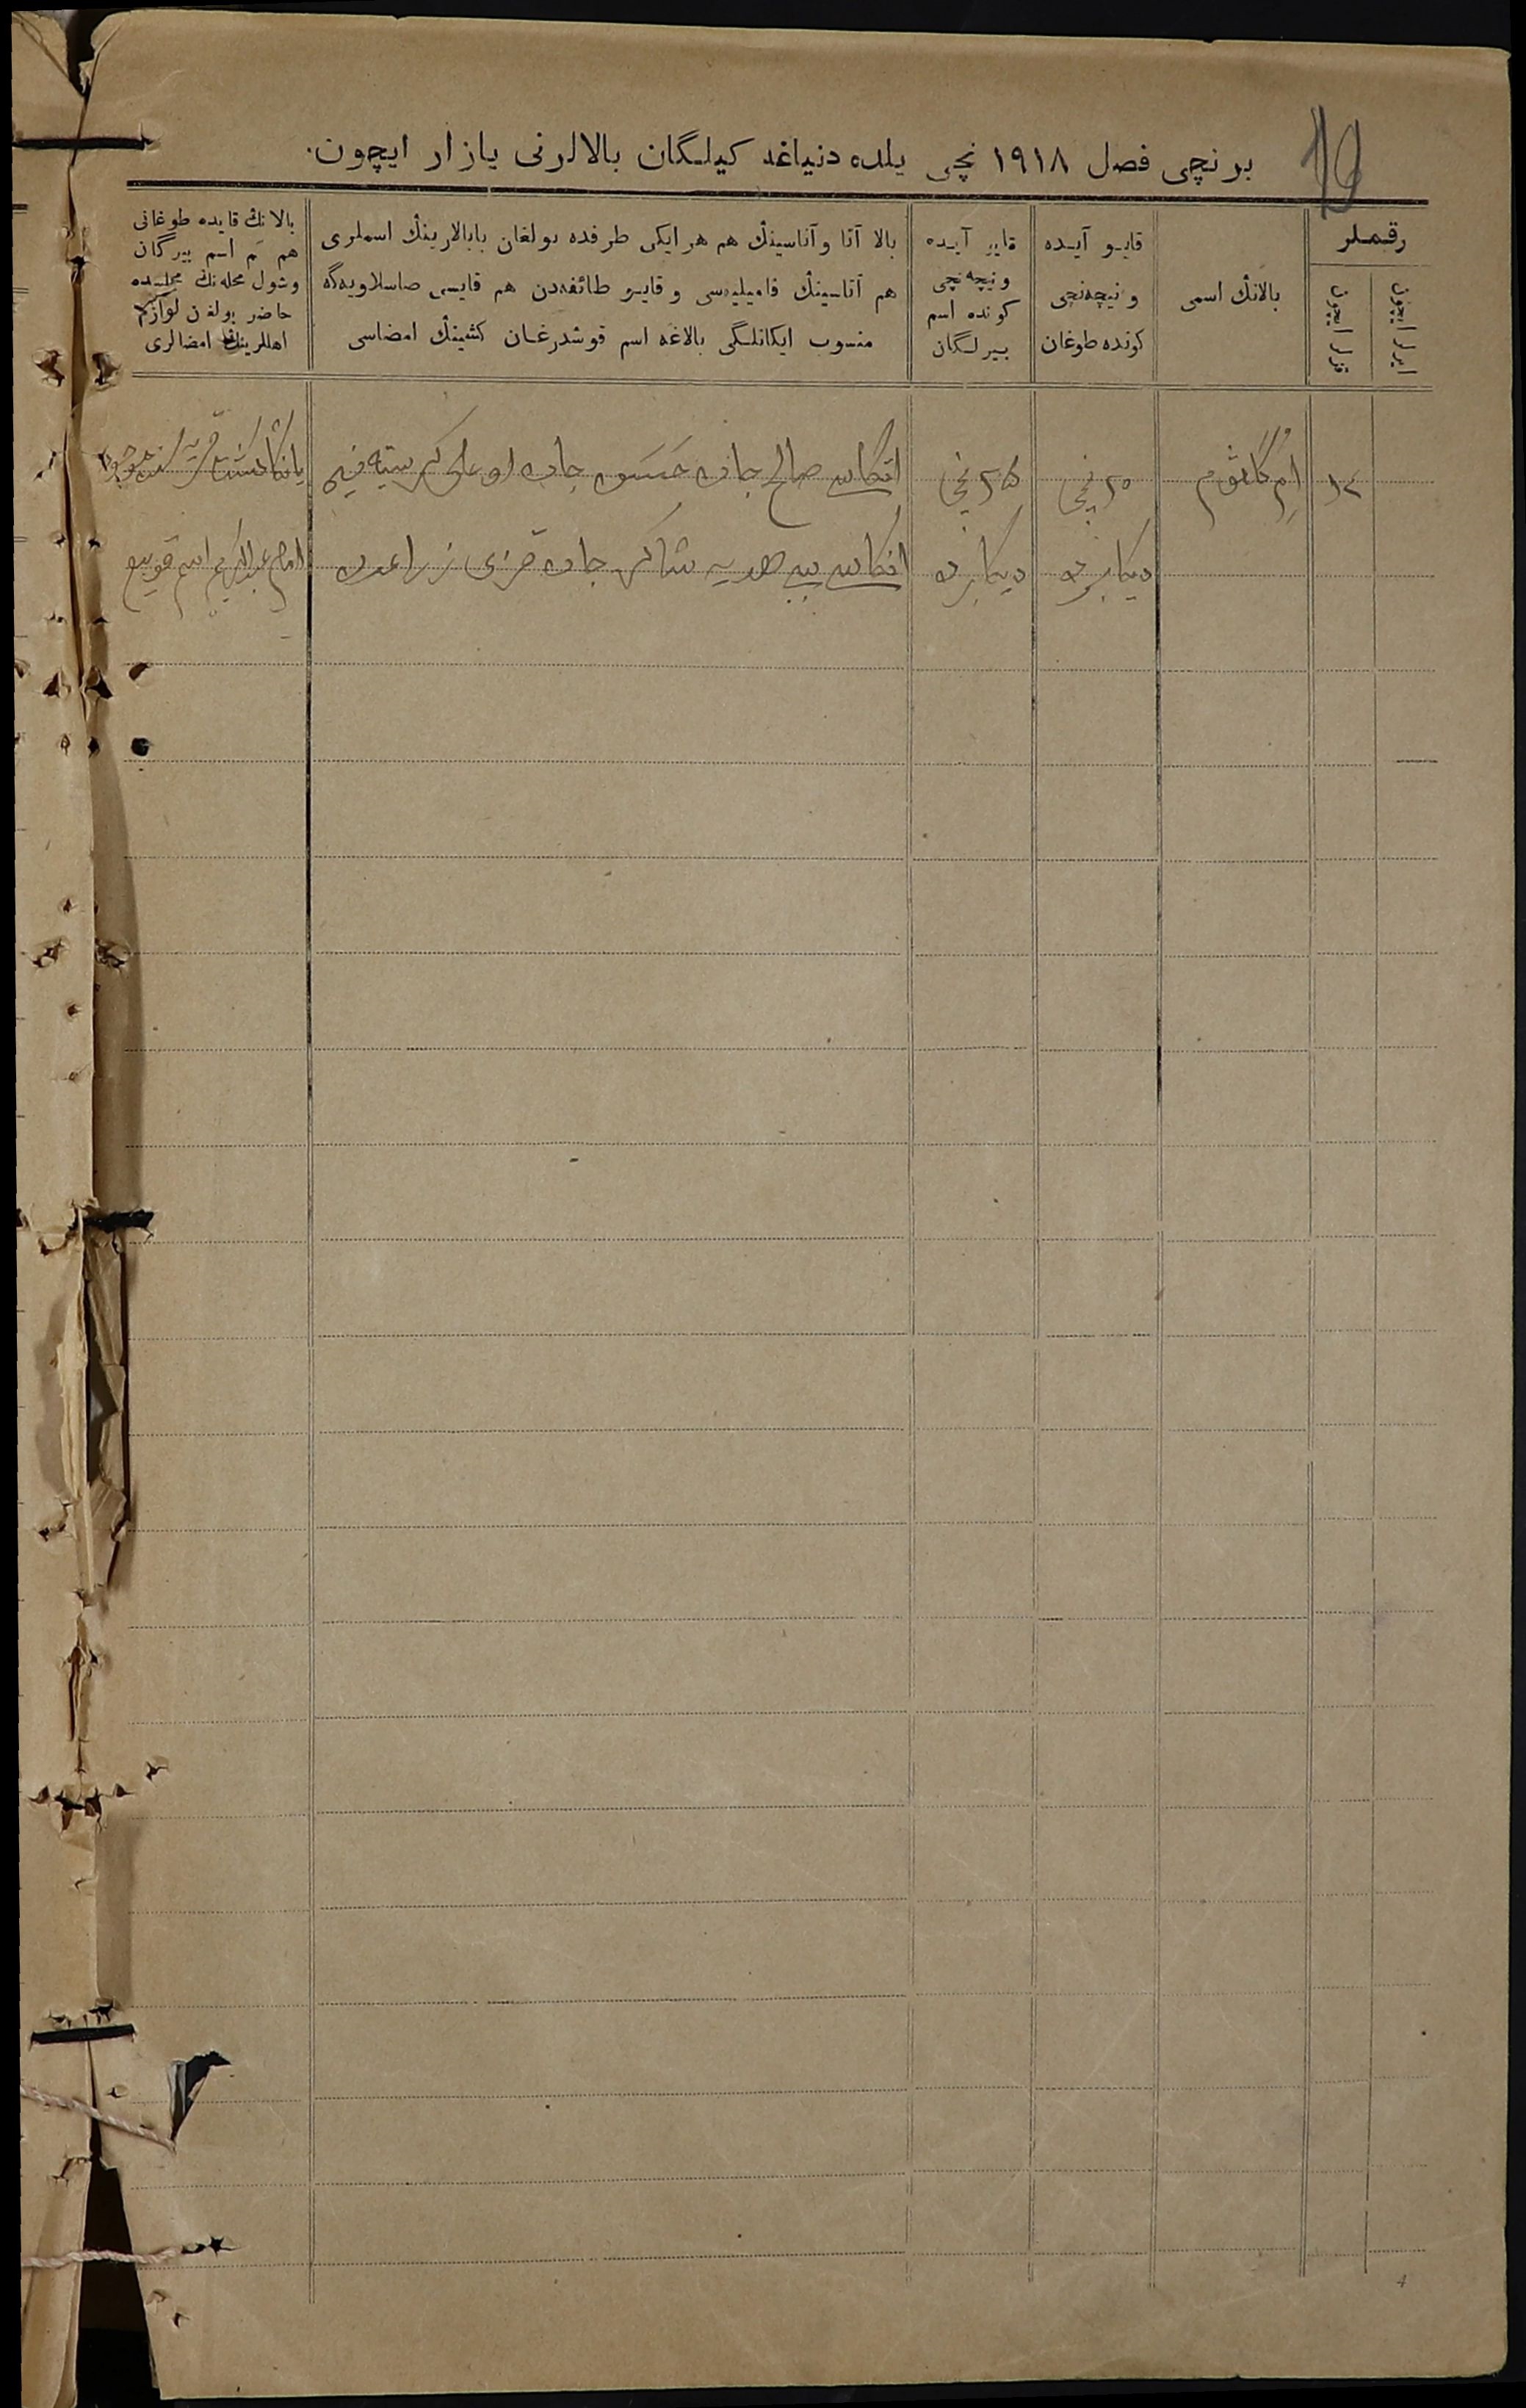 برنچی فصل ١٩١٨ نچی یلده دنیاغه کیلگان بالالرنی یازار ایچون.
رقملر
ایرلر ایچون
قزلر ایچون
بالانڭ اسمی
قایو آیده
و نیچه‌نچی
کونده طوغان
قایو آیده
و نیچه‌نچی
کونده اسم
بیرلگان
بالا آتا و آناسینڭ هم هر ایکی طرفده بولغان بابالارینڭ اسملری
هم آتاسینڭ فامیلیه‌سی و قایو طائفه‌دن هم قایسی صاسلاویه‌گه
منسوب ایکانلگی بالاغه اسم قوشدرغان کشینڭ امضاسی
بالانڭ قایده طوغانی
هم اسم بیرگان
و شول محله‌نڭ مجلسده
حاضر بولغان
اهللرینڭ امضالری
١٢
ام گلثوم
٢٥ نچی
دیکابرده
نچی
دیکابرده
اتکاسی صالح جان جان اوغلی
انکاسی بی بی هدیه شاکر جان قزی
امام عبدالکریم اسم قویدم
4